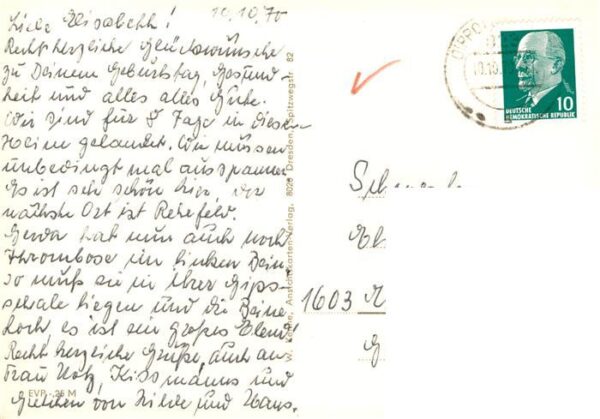 10.10.70
Liebe Elisabeth!
Recht herzliche Glückwünsche
zu Deinem Geburtstag, Gesund-
heit und alles alles Gute.
Wir sind für 8 Tage in diesem
Heim gelandet. Wir müssen
unbedingt mal ausspannen
Es ist sehr schön hier, der
nächste Ort ist Rehefeld.
Gerda hat nun auch noch
Thrombose im linken Bein,
so muß sie in ihrer Gips-
schale liegen und die Beine
hoch, es ist ein großes Elend!
Recht herzliche Grüße, auch an
Frau Kissmanns und
Gretchen von Hilde und Hans.
EVP -,25 M
W. Anschtskarten-Verlag, 8020 Dresden, Spitzwegstr. 82
DIPPO
10
DEUTSCHE
DEMOKRATISCHE REPUBLIK
1603